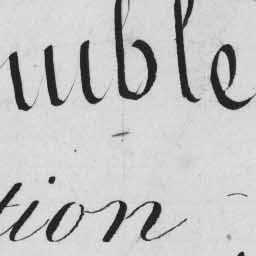 uuble
tion -